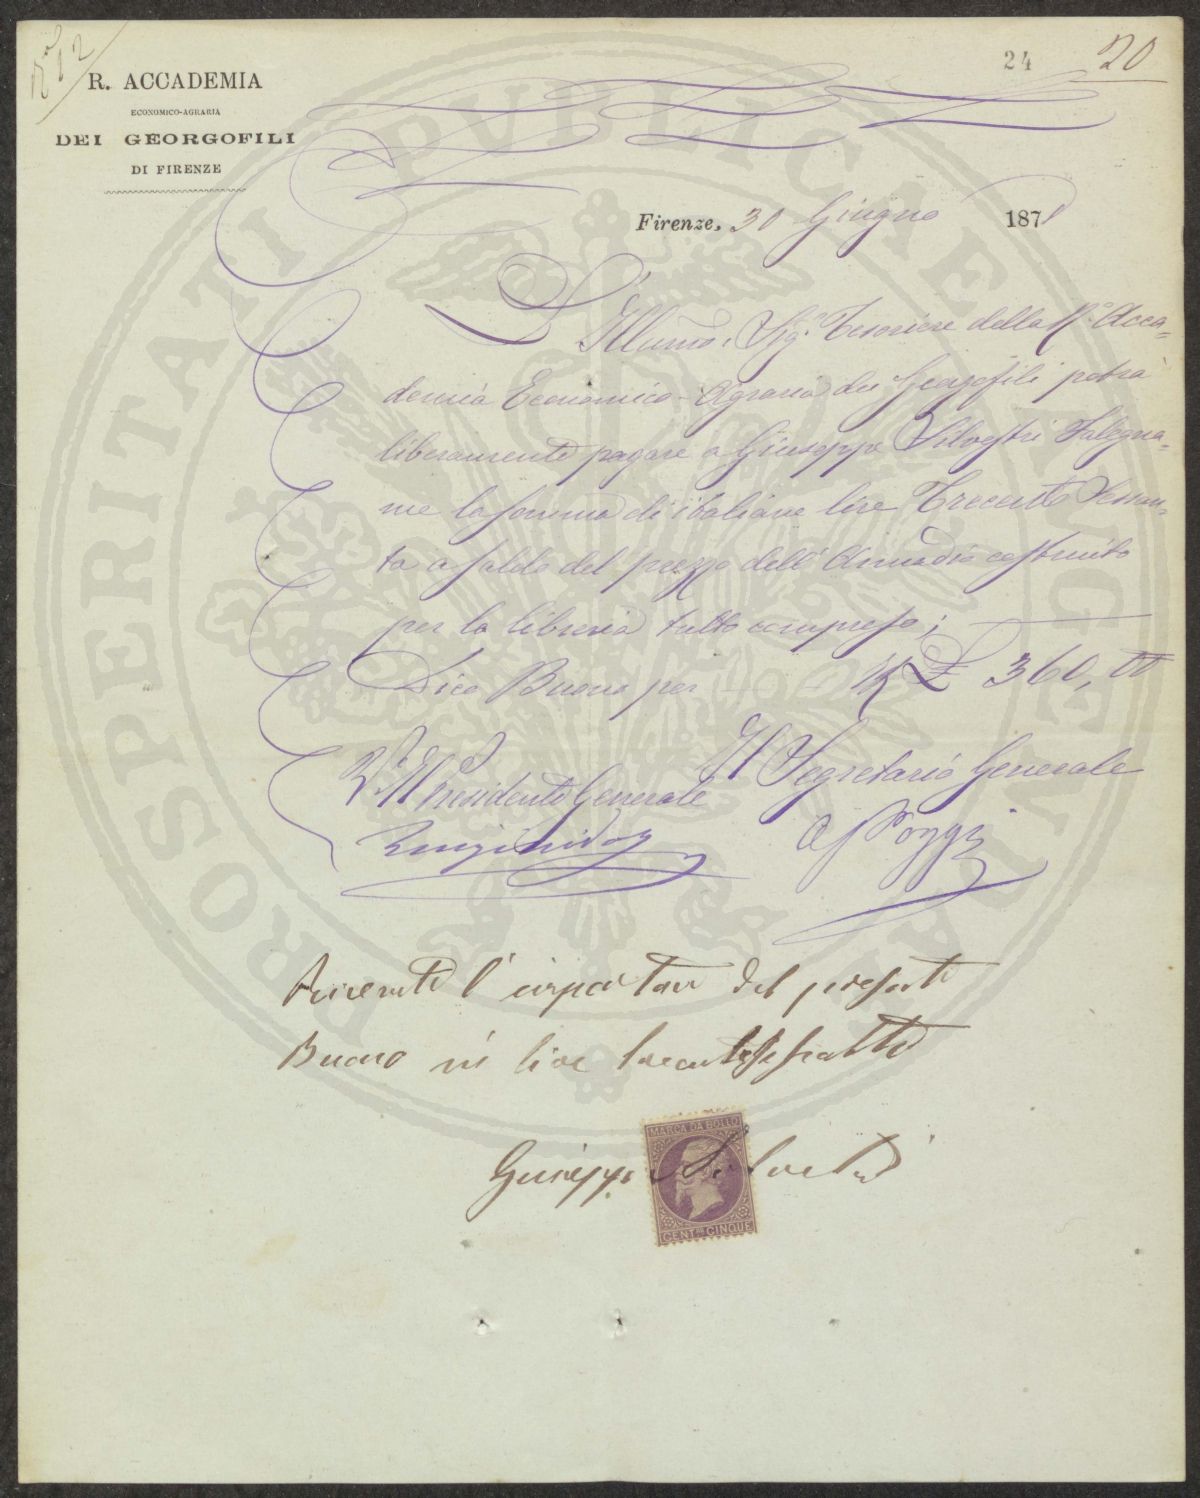 N.° 12
24
20
R. ACCADEMIA
ECONOMICO-AGRARIA
DEI GEORGOFILI
DI FIRENZE
Firenze, 30 Giugno 1871
L'Illumo. Sig.r Tesoriere della R.a Acca=
demia Economico-Agraria dei Georgofili potrà
liberamente pagare a Giuseppe Silvestri Falegna=
me la somma di italiane lire Trecento Sessan=
ta a saldo del prezzo dell'Armadio costruito
per la libreria tutto compreso;
Dico Buono per £ 360,00
V.° Il Presidente Generale
Il Segretario Generale
Luigi Ridolfi
Poggi
Ricevuto l'importare del presente
Buono in lire trecentosessanta
Giuseppe Silvestri
MARCA DA BOLLO
CENT.MI CINQUE
PROSPERITATI PUBLICAE AUGENDAE